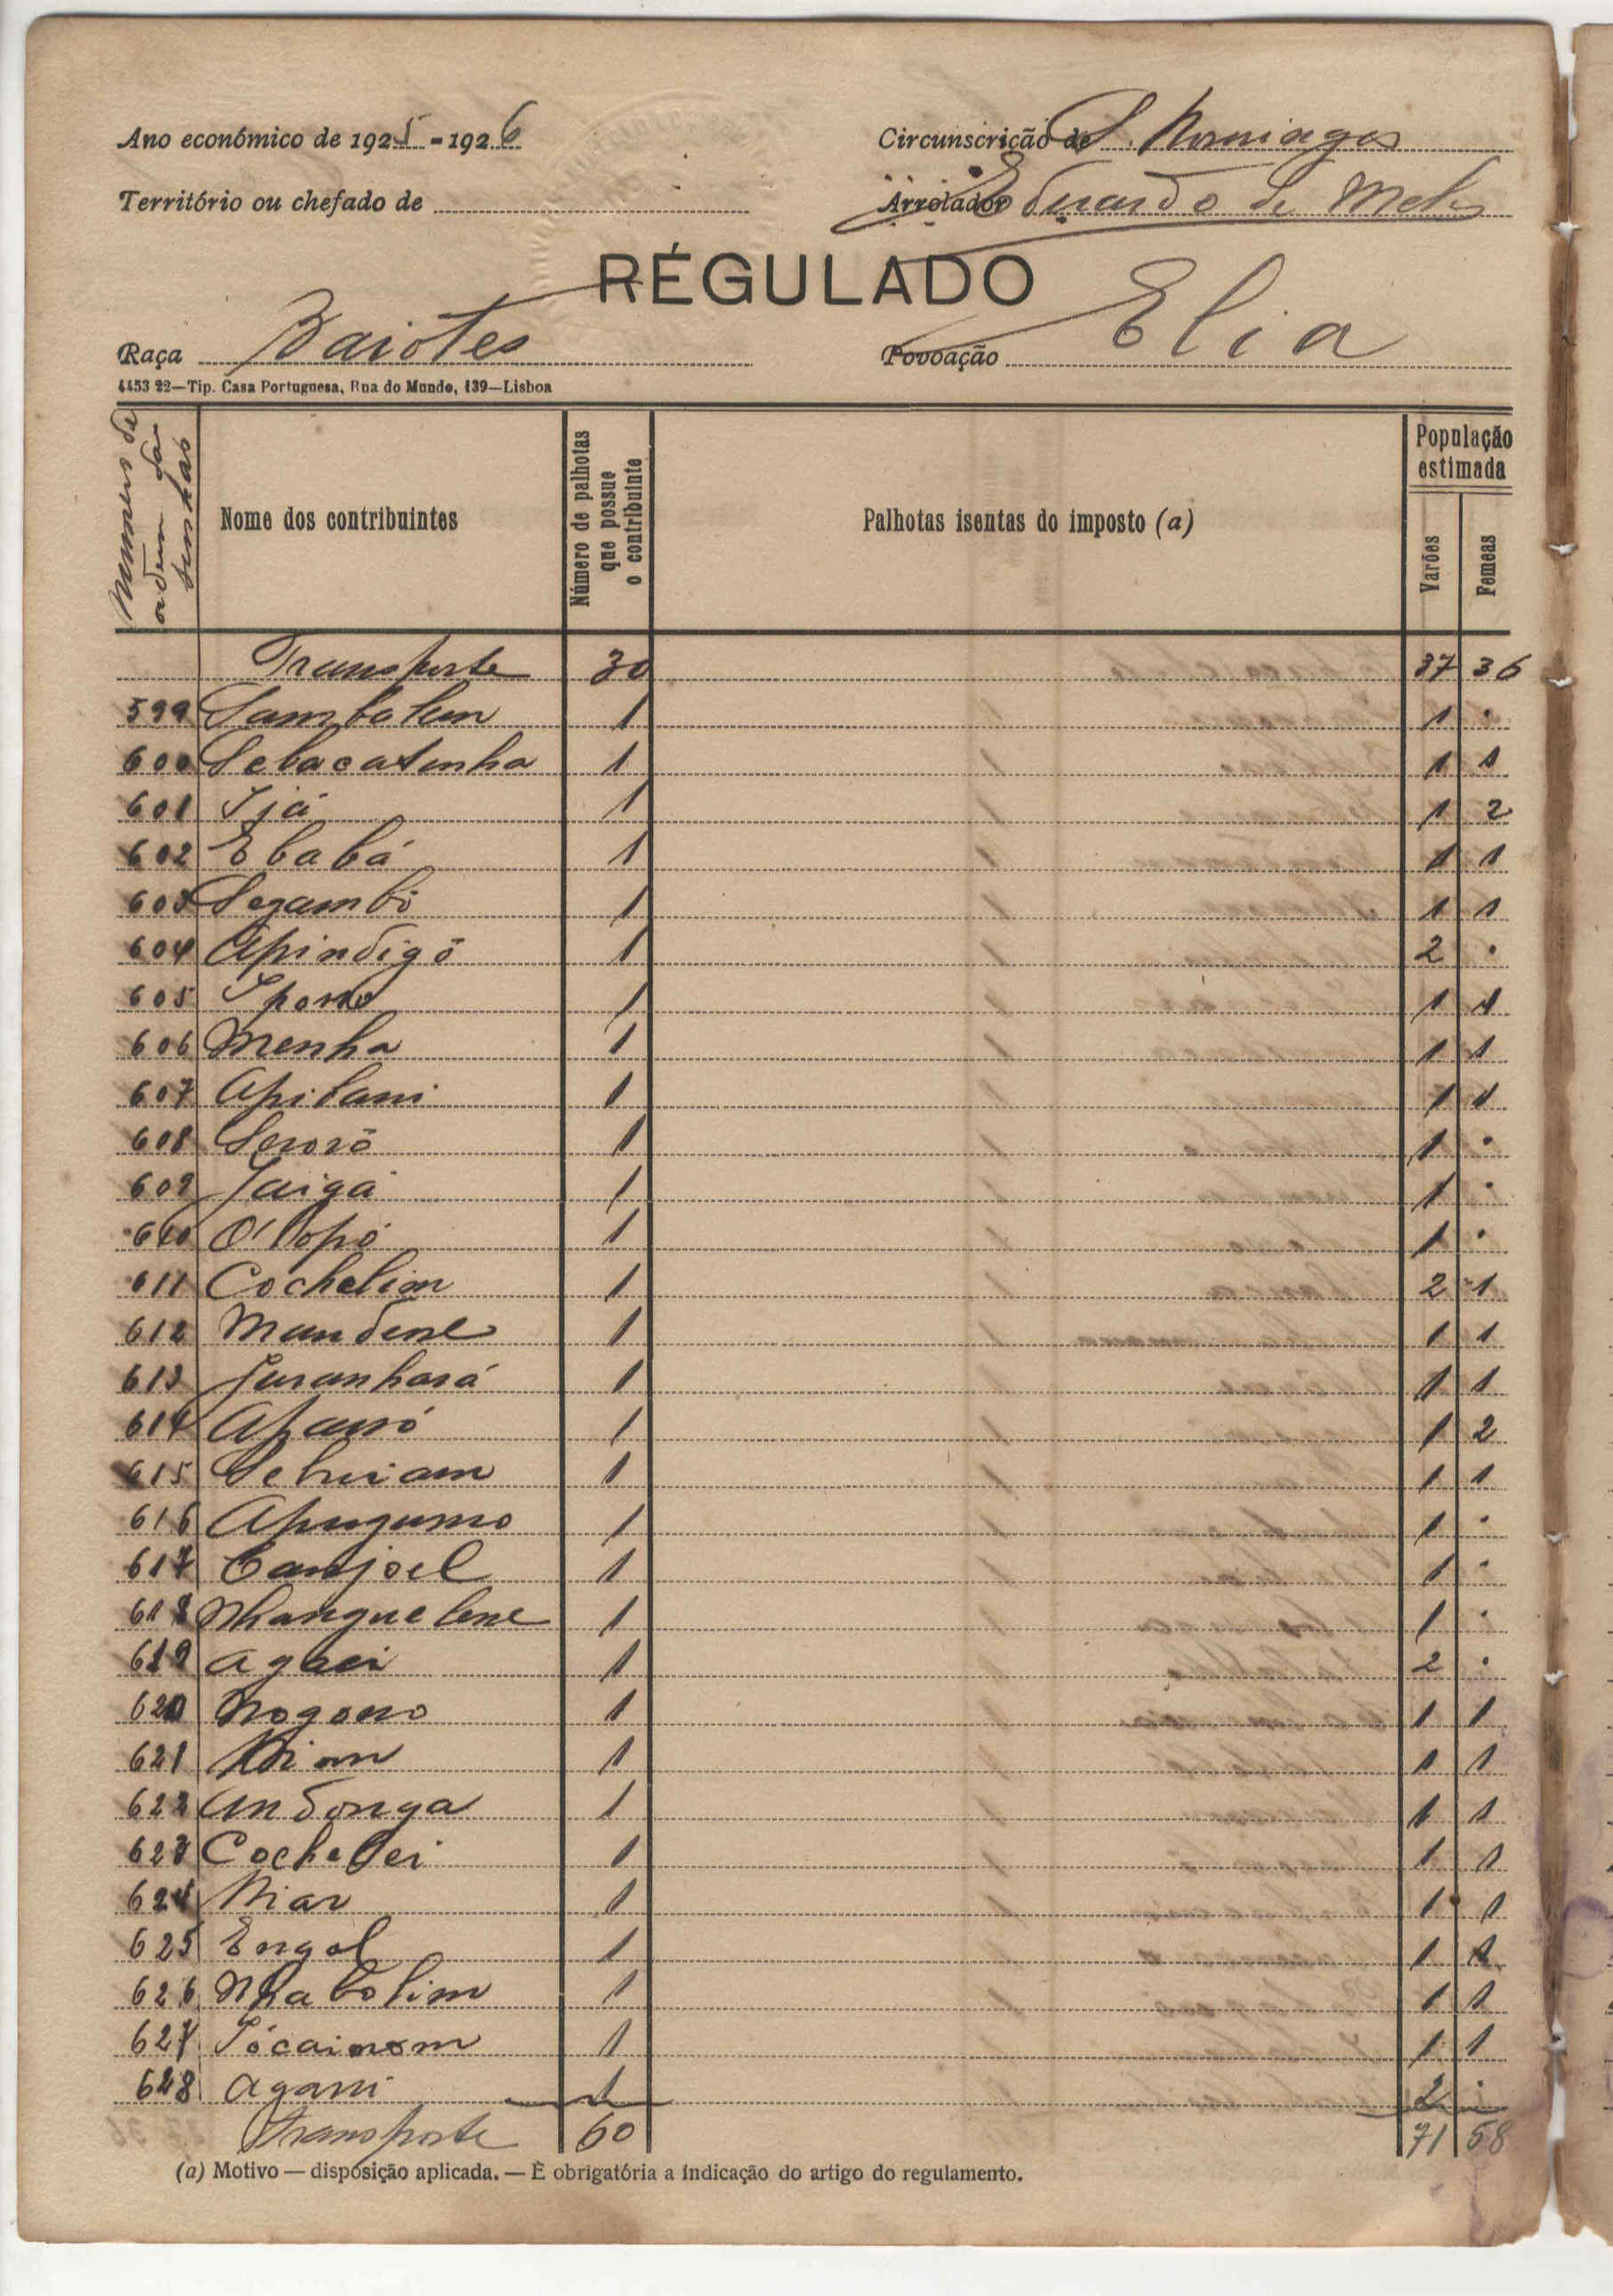 Ano económico de 1925-1926
Circunscrição de S. Domingos
Território ou chefado de
Arrolador Eduardo de Melo
RÉGULADO
Raça Baiotes
Povoação Elia
4453 22—Tip. Casa Portuguesa, Rua do Mundo, 139—Lisboa
Numero de ordem das senhas
Nome dos contribuintes
Número de palhotas que possue o contribuinte
Palhotas isentas do imposto (a)
População estimada
Varões
Femeas
Transporte 30 37 36
599 Sambolem 1 1 .
600 Sebacatenha 1 1 1
601 Ijá 1 1 2
602 Ebabá 1 1 1
603 Segambó 1 1 1
604 Apindigó 1 2 .
605 1 1 1
606 Menha 1 1 1
607 Apilani 1 1 1
608 1 1 .
609 Jaiga 1 1 .
610 1 1 .
611 Cochelim 1 2 1
612 Mandene 1 1 1
613 Juranhará 1 1 1
614 1 1 2
615 1 1 1
616 Apugumo 1 1 .
617 Canjoel 1 1 .
618 Nhanguelene 1 1 .
619 1 2 .
620 1 1 1
621 1 1 1
622 Andonga 1 1 1
623 1 1 1
624 Niar 1 1 1
625 Engol 1 1 1
626 Nhabolim 1 1 1
627 1 1 1
628 1 2 .
Transporte 60 71 58
(a) Motivo — disposição aplicada. — É obrigatória a indicação do artigo do regulamento.